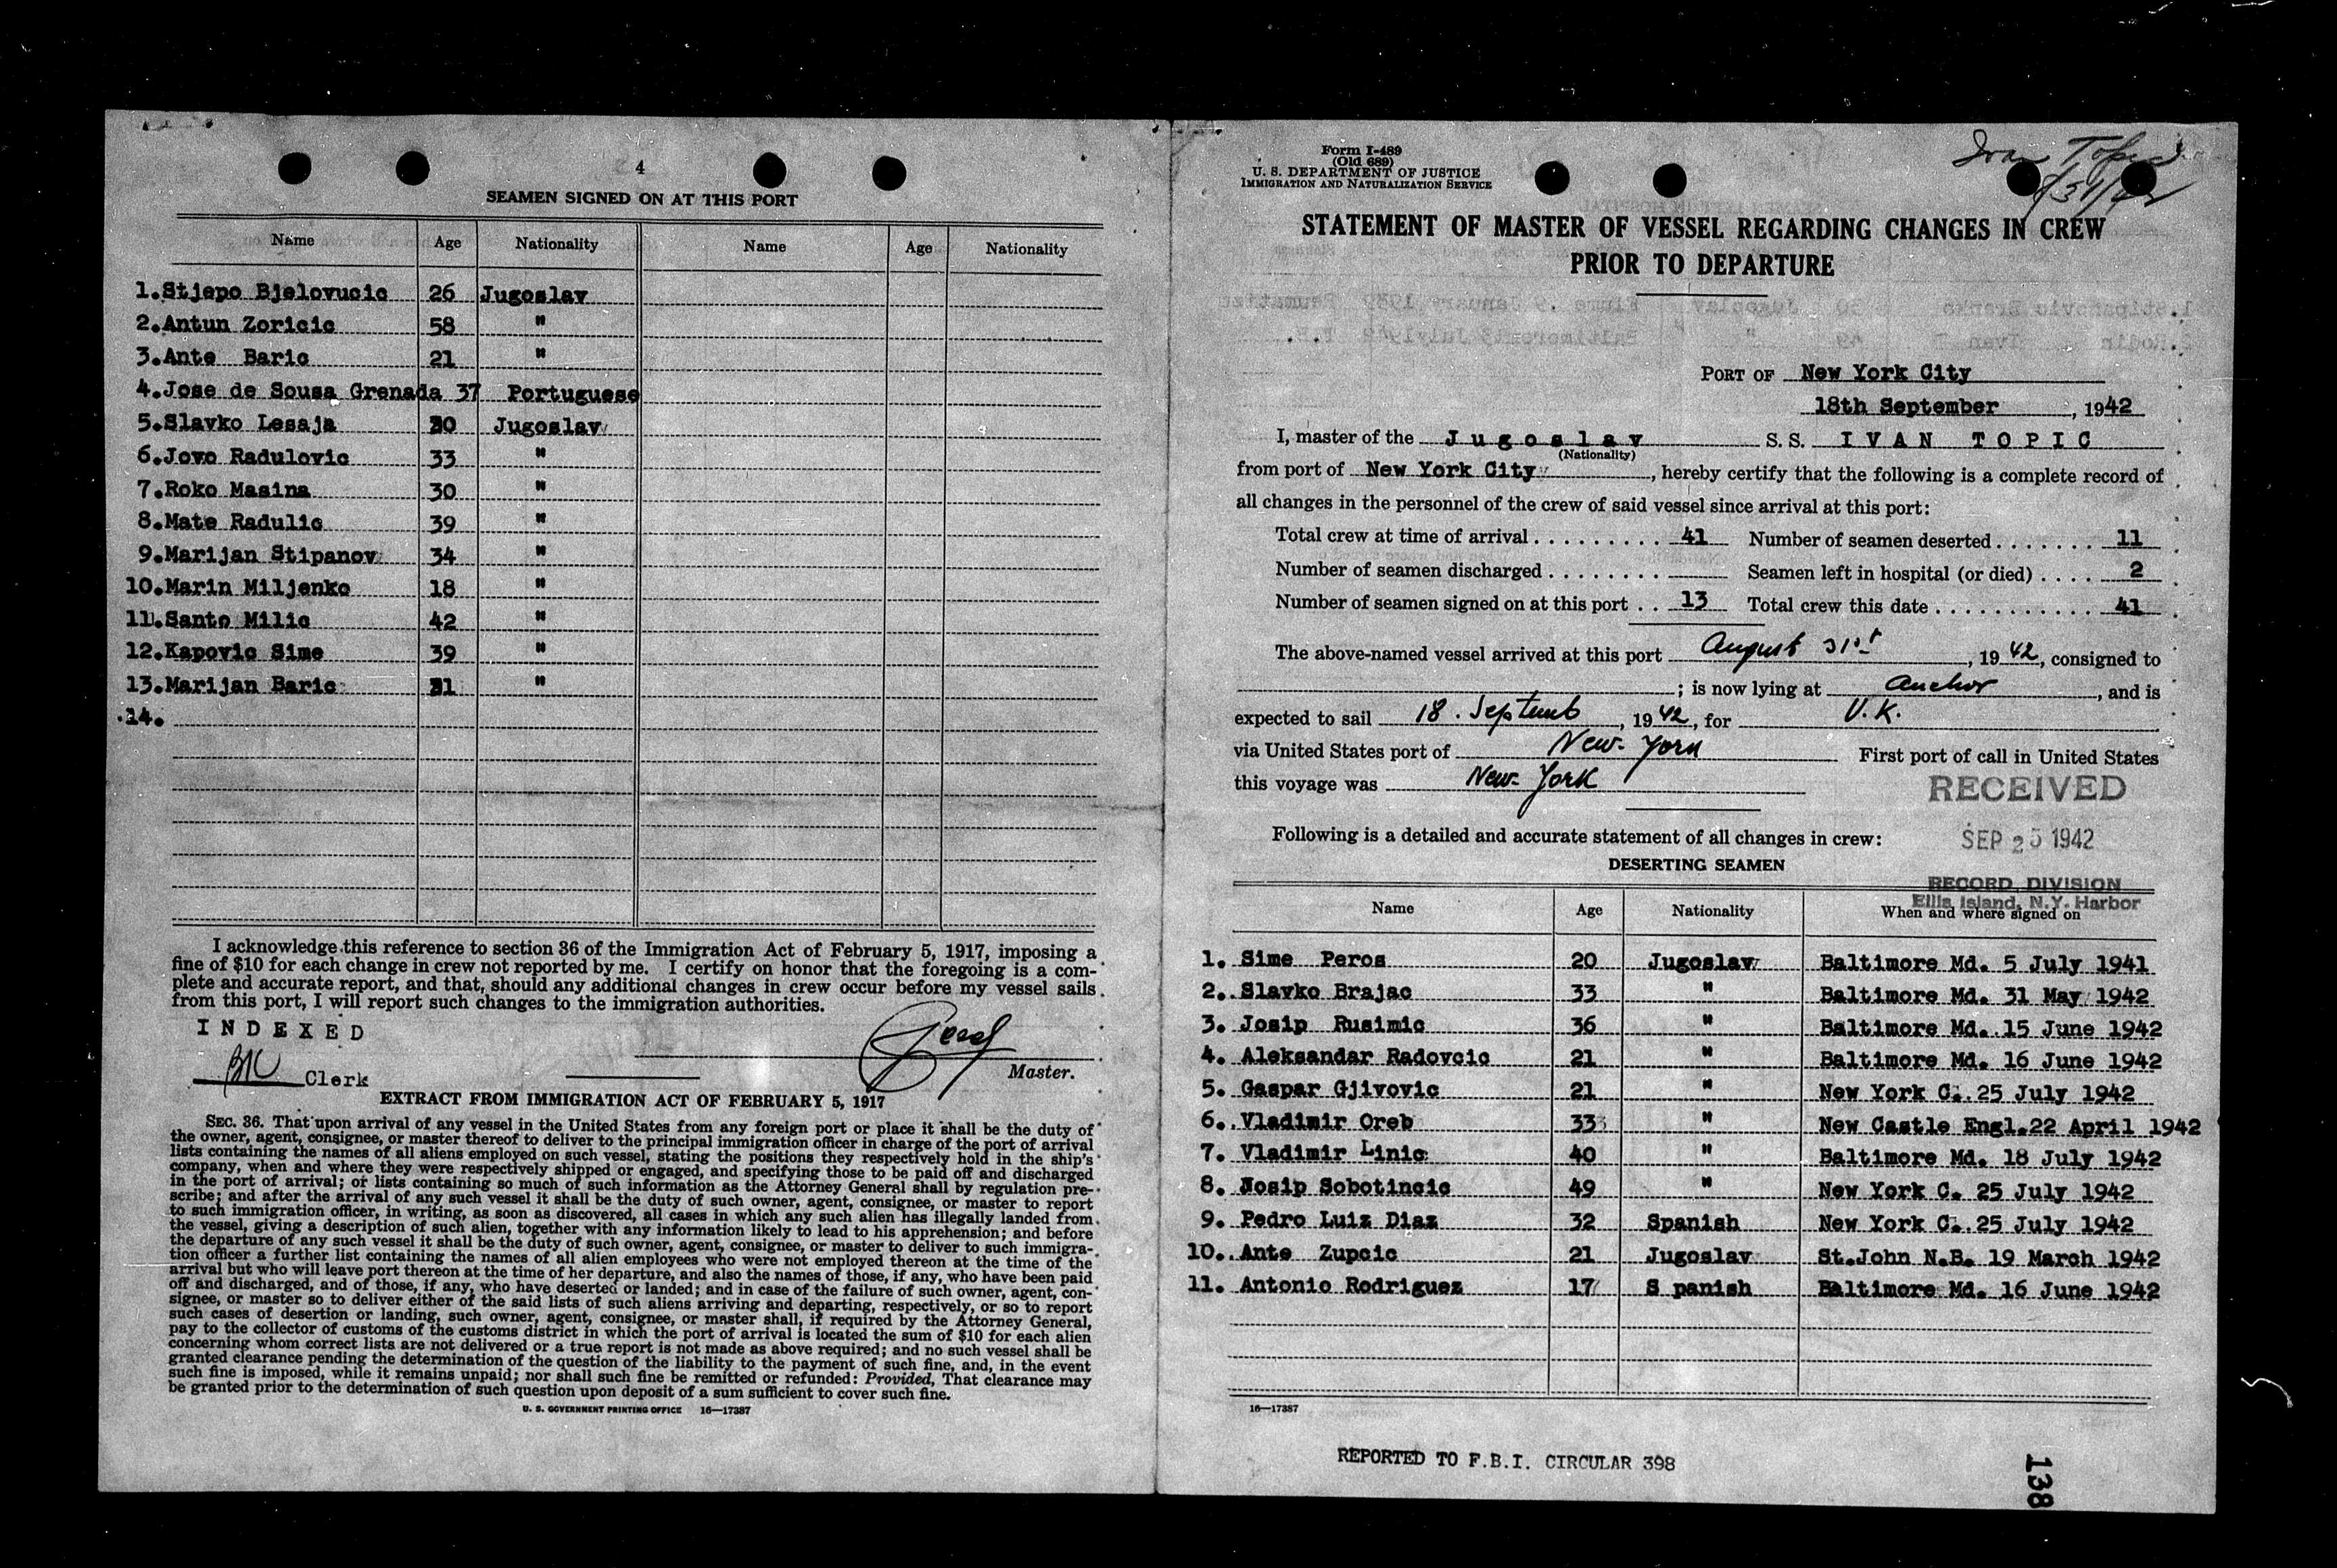 4
SEAMEN SIGNED ON AT THIS PORT
Name Age Nationality Name Age Nationality
1. Stjepo Bjelovucic 26 Jugoslav
2. Antun Zoricic 58 "
3. Ante Baric 21 "
4. Jose de Sousa Grenada 37 Portuguese
5. Slavko Lesaja 30 Jugoslav
6. Jovo Radulovic 33 "
7. Roko Masina 30 "
8. Mate Radulic 39 "
9. Marijan Stipanov 34 "
10. Marin Miljenko 18 "
11. Santo Milic 42 "
12. Kapovic Sime 39 "
13. Marijan Baric "
14.
I acknowledge this reference to section 36 of the Immigration Act of February 5, 1917, imposing a
fine of $10 for each change in crew not reported by me. I certify on honor that the foregoing is a com-
plete and accurate report, and that, should any additional changes in crew occur before my vessel sails
from this port, I will report such changes to the immigration authorities.
INDEXED
Clerk
Master.
EXTRACT FROM IMMIGRATION ACT OF FEBRUARY 5, 1917
SEC. 36. That upon arrival of any vessel in the United States from any foreign port or place it shall be the duty of
the owner, agent, consignee, or master thereof to deliver to the principal immigration officer in charge of the port of arrival
lists containing the names of all aliens employed on such vessel, stating the positions they respectively hold in the ship's
company, when and where they were respectively shipped or engaged, and specifying those to be paid off and discharged
in the port of arrival; or lists containing so much of such information as the Attorney General shall by regulation pre-
scribe; and after the arrival of any such vessel it shall be the duty of such owner, agent, consignee, or master to report
to such immigration officer, in writing, as soon as discovered, all cases in which any such alien has illegally landed from
the vessel, giving a description of such alien, together with any information likely to lead to his apprehension; and before
the departure of any such vessel it shall be the duty of such owner, agent, consignee, or master to deliver to such immigra-
tion officer a further list containing the names of all alien employees who were not employed thereon at the time of the
arrival but who will leave port thereon at the time of her departure, and also the names of those, if any, who have been paid
off and discharged, and of those, if any, who have deserted or landed; and in case of the failure of such owner, agent, con-
signee, or master so to deliver either of the said lists of such aliens arriving and departing, respectively, or so to report
such cases of desertion or landing, such owner, agent, consignee, or master shall, if required by the Attorney General,
pay to the collector of customs of the customs district in which the port of arrival is located the sum of $10 for each alien
concerning whom correct lists are not delivered or a true report is not made as above required; and no such vessel shall be
granted clearance pending the determination of the question of the liability to the payment of such fine, and, in the event
such fine is imposed, while it remains unpaid; nor shall such fine be remitted or refunded: Provided, That clearance may
be granted prior to the determination of such question upon deposit of a sum sufficient to cover such fine.
U. S. GOVERNMENT PRINTING OFFICE 16—17387
Form I-489
(Old 689)
U. S. DEPARTMENT OF JUSTICE
IMMIGRATION AND NATURALIZATION SERVICE
Ivan Topic
STATEMENT OF MASTER OF VESSEL REGARDING CHANGES IN CREW
PRIOR TO DEPARTURE
PORT OF New York City
18th September, 1942
I, master of the Jugoslav S. S. IVAN TOPIC
(Nationality)
from port of New York City, hereby certify that the following is a complete record of
all changes in the personnel of the crew of said vessel since arrival at this port:
Total crew at time of arrival . . . . . . . . . 41 Number of seamen deserted . . . . . . . 11
Number of seamen discharged . . . . . . . . Seamen left in hospital (or died) . . . . 2
Number of seamen signed on at this port . . 13 Total crew this date . . . . . . . . . . . 41
The above-named vessel arrived at this port August 31st, 1942, consigned to
; is now lying at Anchor, and is
expected to sail 18. Septemb, 1942, for U.K.
via United States port of New-York First port of call in United States
this voyage was New-York
RECEIVED
Following is a detailed and accurate statement of all changes in crew:
SEP 25 1942
DESERTING SEAMEN
RECORD DIVISION
Ellis Island, N.Y. Harbor
Name Age Nationality When and where signed on
1. Sime Peros 20 Jugoslav Baltimore Md. 5 July 1941
2. Slavko Brajac 33 " Baltimore Md. 31 May 1942
3. Josip Rusimic 36 " Baltimore Md. 15 June 1942
4. Aleksandar Radovcic 21 " Baltimore Md. 16 June 1942
5. Gaspar Gjivovic 21 " New York C. 25 July 1942
6. Vladimir Oreb 33 " New Castle Engl. 22 April 1942
7. Vladimir Linic 40 " Baltimore Md. 18 July 1942
8. Josip Sobotincic 49 " New York C. 25 July 1942
9. Pedro Luiz Diaz 32 Spanish New York C. 25 July 1942
10. Ante Zupcic 21 Jugoslav St.John N.B. 19 March 1942
11. Antonio Rodriguez 17 S panish Baltimore Md. 16 June 1942
16—17387
REPORTED TO F.B.I. CIRCULAR 398
138